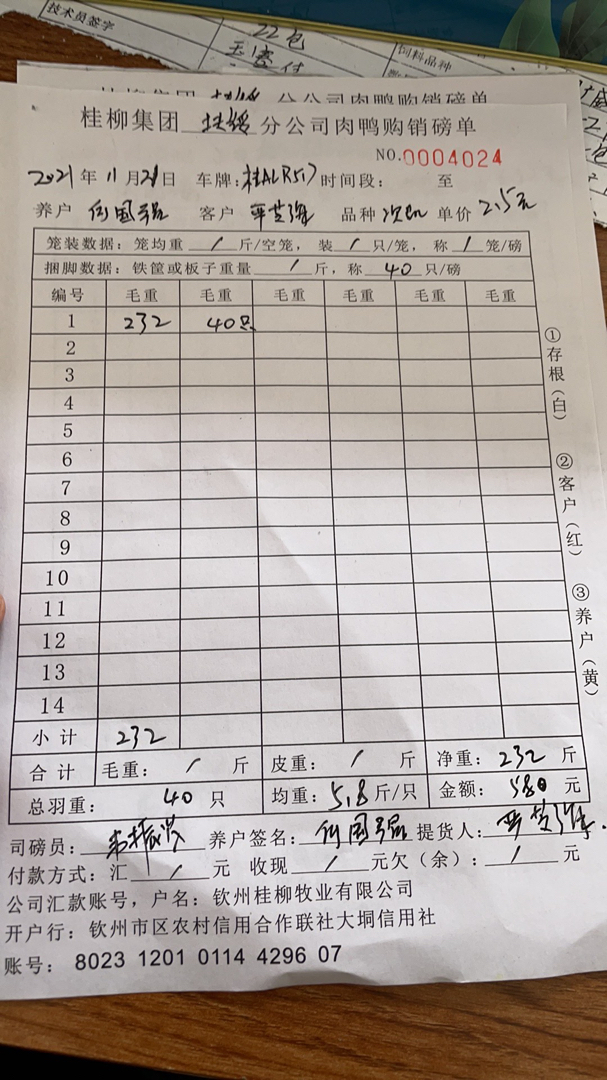 技术员签字
22包
饲料品种
桂柳集团 扶绥 分公司肉鸭购销磅单
桂柳集团 扶绥 分公司肉鸭购销磅单
NO.0004024
2021年11月21日 车牌:桂ALR517 时间段: 至
养户 何国强 客户 品种 次品 单价 2.5元
笼装数据:笼均重 / 斤/空笼,装 / 只/笼,称 / 笼/磅
捆脚数据:铁筐或板子重量 / 斤,称 40 只/磅
编号 毛重 毛重 毛重 毛重 毛重 毛重
1 232 40只
2
3
4
5
6
7
8
9
10
11
12
13
14
小计 232
合计 毛重: / 斤 皮重: / 斤 净重: 232 斤
总羽重: 40 只 均重: 5.8 斤/只 金额: 580 元
司磅员: 养户签名: 何国强 提货人:
付款方式:汇 / 元 收现 / 元欠(余): / 元
公司汇款账号,户名:钦州桂柳牧业有限公司
开户行:钦州市区农村信用合作联社大垌信用社
账号: 8023 1201 0114 4296 07
①存根(白)
②客户(红)
③养户(黄)